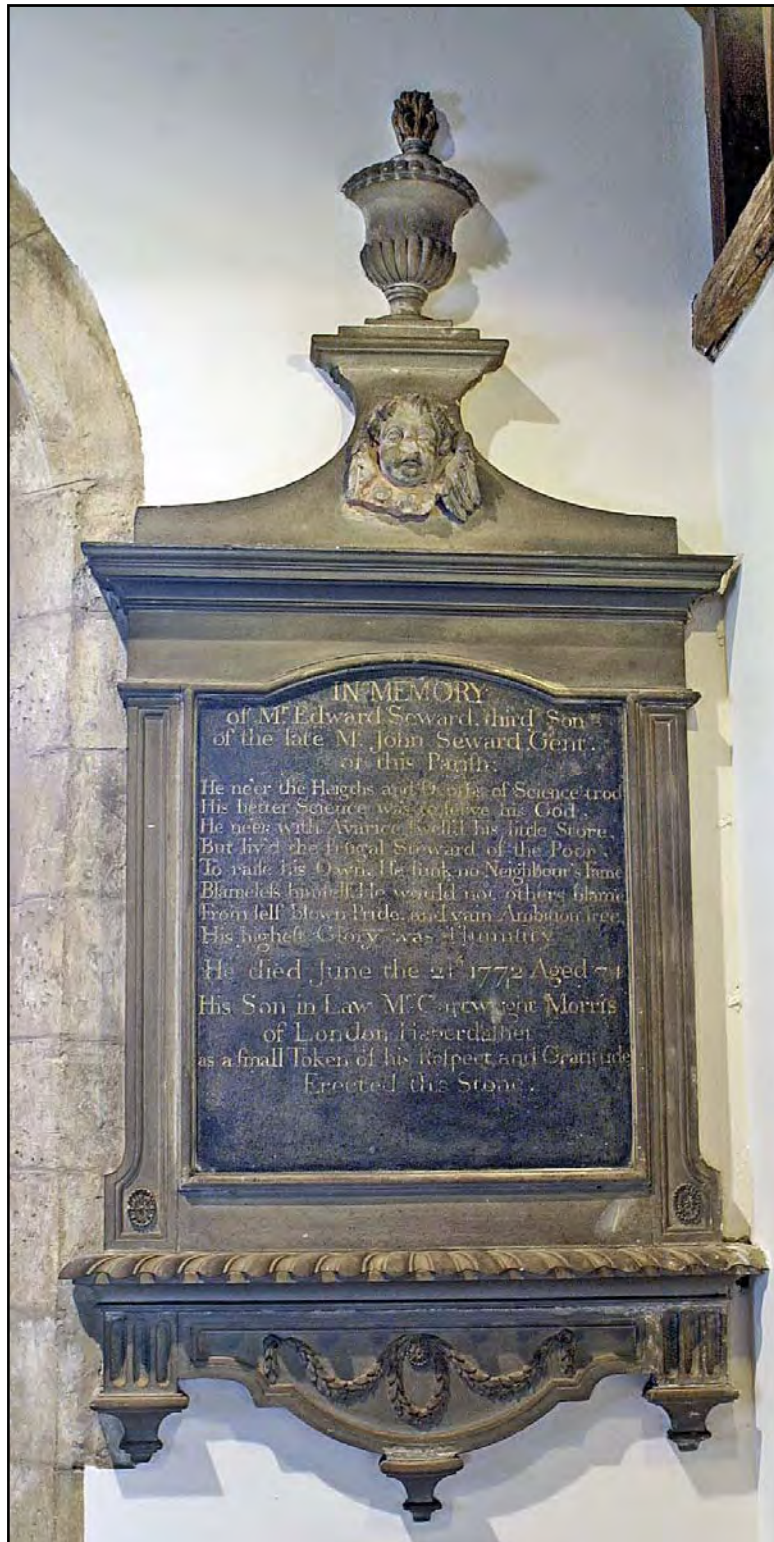 IN MEMORY
of Mr. Edward Seward, third Son
of the late Mr. John Seward Gent.
of this Parish;
He ne'er the Heigths and Depths of Science trod
His better Science was to serve his God.
He neer with Avarice swell'd his little Store,
But liv'd the frugal Steward of the Poor.
To raise his Own, He sunk no Neighbour's Fame
Blameless himself, He would not others blame
From self blown Pride, and vain Ambition free
His highest Glory was Humility
He died June the 21st 1772 Aged 74
His Son in Law Mr. Cartwright Morris
of London Haberdasher
as a small Token of his Respect and Gratitude
Erected this Stone.